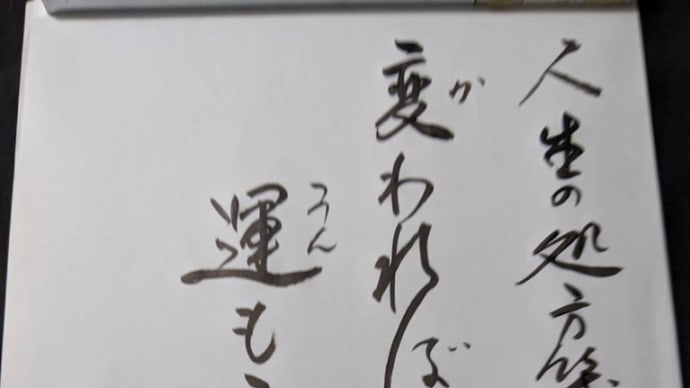 人生の処方箋
変われば
か
運も
うん